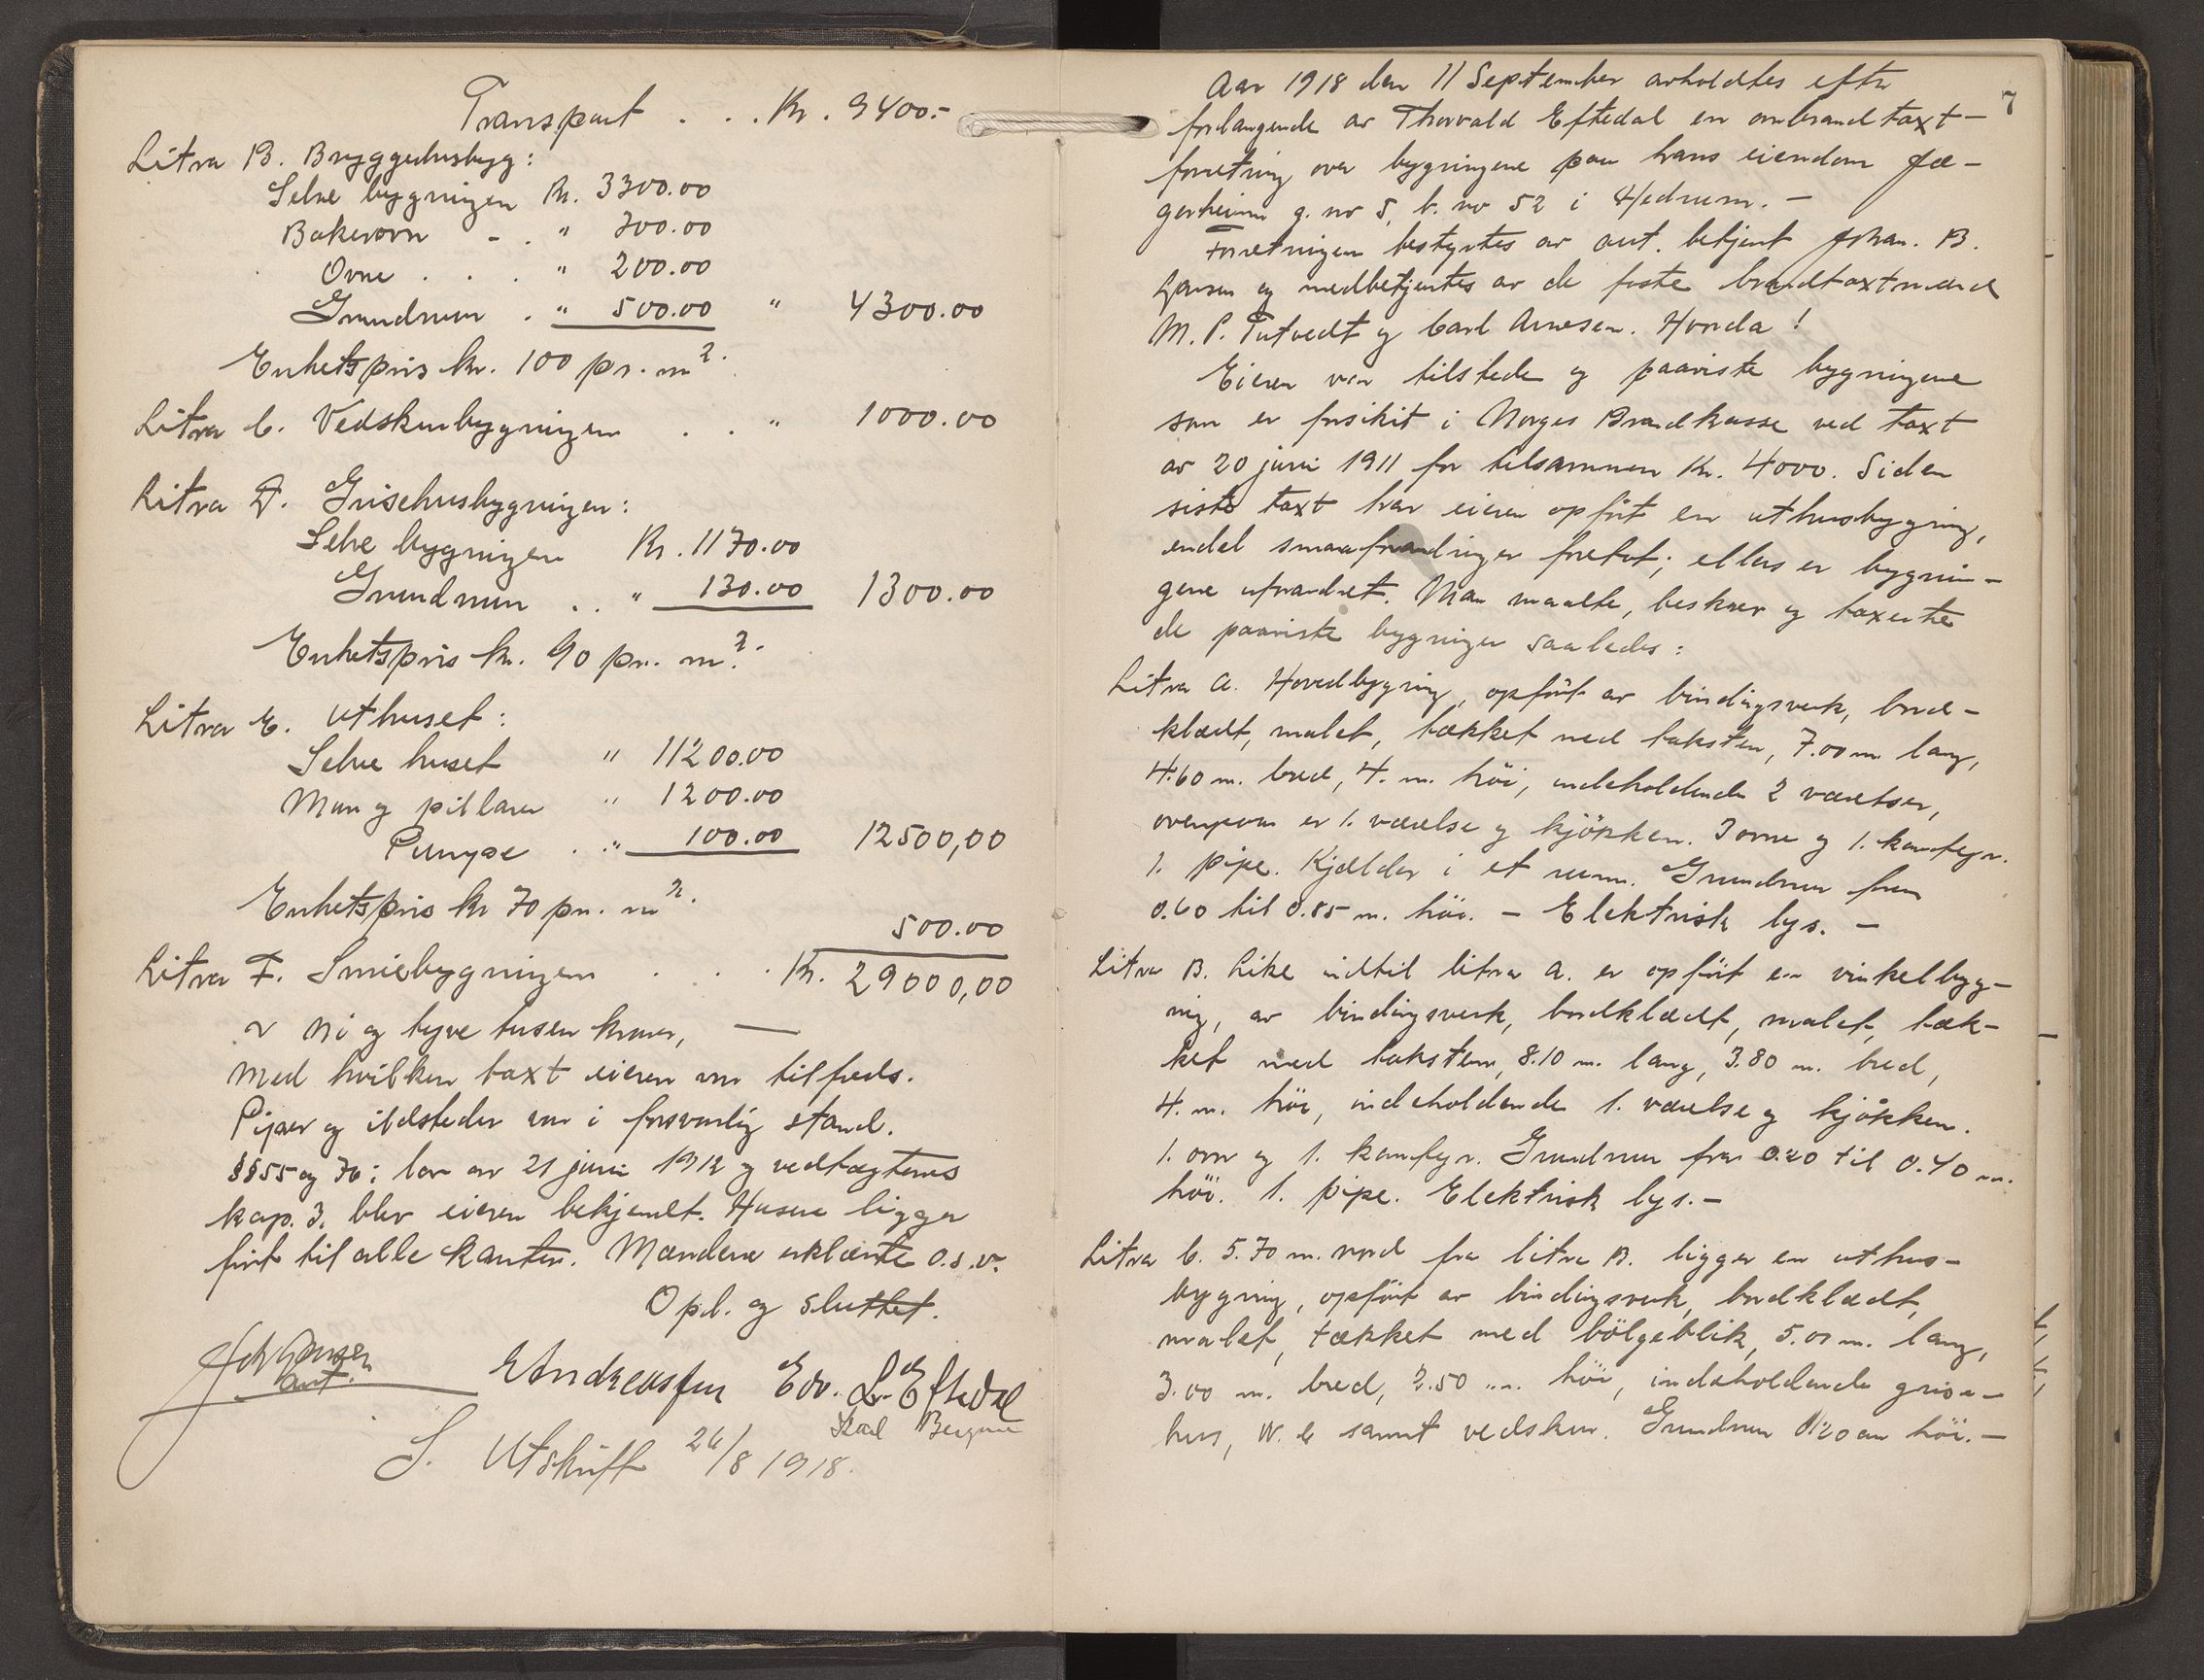 Transport . . . Kr. 9400.-
Litra B. Bryggerhusbyg:
Selve bygningen Kr. 3300.00
Bakerovn - . " 300.00
Ovne . . . " 200.00
Grundmur . " 500.00 " 4300.00
Enhetspris kr. 100 pr. m².
Litra C. Vedskurbygningen . . " 1000.00
Litra D. Grisehusbygningen:
Selve bygningen Kr. 1170.00
Grundmur . . " 130.00 1300.00
Enhetspris kr. 90 pr. m².
Litra E. Uthuset:
Selve huset " 11200.00
Mur og pillarer " 1200.00
Pumpe . . " 100.00 12500,00
Enhetspris kr 70 pr. m².
500.00
Litra F. Smiebygningen . . . Kr. 29000,00
er ni og tyve tusen kroner, —
med hvilken taxt eieren var tilfreds.
Piper og ildsteder var i forsvarlig stand.
§§ 55 og 76 i lov av 21 juni 1912 og vedtægternes
kap. 3. blev eieren bekjendt. Husene ligger
frit til alle kanter. Mændene erklærte o.s.v.
Opl. og sluttet.
Joh Jansen
aut.
E Andreassen Edv. L. Eftedal
S. Utskrift 26/8 1918.
7
Aar 1918 den 11 September avholdtes efter
forlangende av Thorvald Eftedal en ombrandtaxt-
forretning over bygningene paa hans eiendom Jæ-
gerheim g. no 5, b. no 52 i Hedrum. -
Forretningen bestyrtes av aut. betjent Johan. B.
Jansen og medbetjentes av de faste brandtaxtmænd
M. P. Tutvedt og Carl Arnesen. Hvorda!
Eieren var tilstede og paaviste bygningene
som er forsikret i Norges Brandkasse ved taxt
av 20 juni 1911 for tilsammen Kr. 4000. Siden
siste taxt har eieren opført en uthusbygning,
endel smaaforandringer foretat; ellers er bygnin-
gene uforandret. Man maalte, beskrev og taxerte
de paaviste bygninger saaledes:
Litra A. Hovedbygning, opført av bindingsverk, bord-
klædt, malet, tækket med taksten, 7.00 m lang,
4.60 m. bred, 4. m. höi, indeholdende 2 værelser,
ovenpaa er 1. værelse og kjökken. 3 ovne og 1. komfyr.
1. pipe. Kjælder i et rum. Grundmur fra
0.60 til 0.85 m. höi. - Elektrisk lys. -
Litra B. Like indtil litra A. er opfört en vinkelbyg-
ning, av bindingsverk, bordklædt, malet, tæk-
ket med taksten, 8.10 m. lang, 3.80 m. bred,
4. m. höi, indeholdende 1. værelse og kjökken.
1. ovn og 1. komfyr. Grundmur fra 0.20 til 0.40 m.
höi. 1. pipe. Elektrisk lys. -
Litra C. 5.70 m. nord fra litra B. ligger en uthus-
bygning, opfört av bindingsverk, bordklædt,
malet, tækket med bölgeblik, 5.00 m. lang,
3.00 m. bred, 2.50 m. höi, indeholdende grise-
hus, W. C samt vedskur. Grundmur 0.20 m höi. -